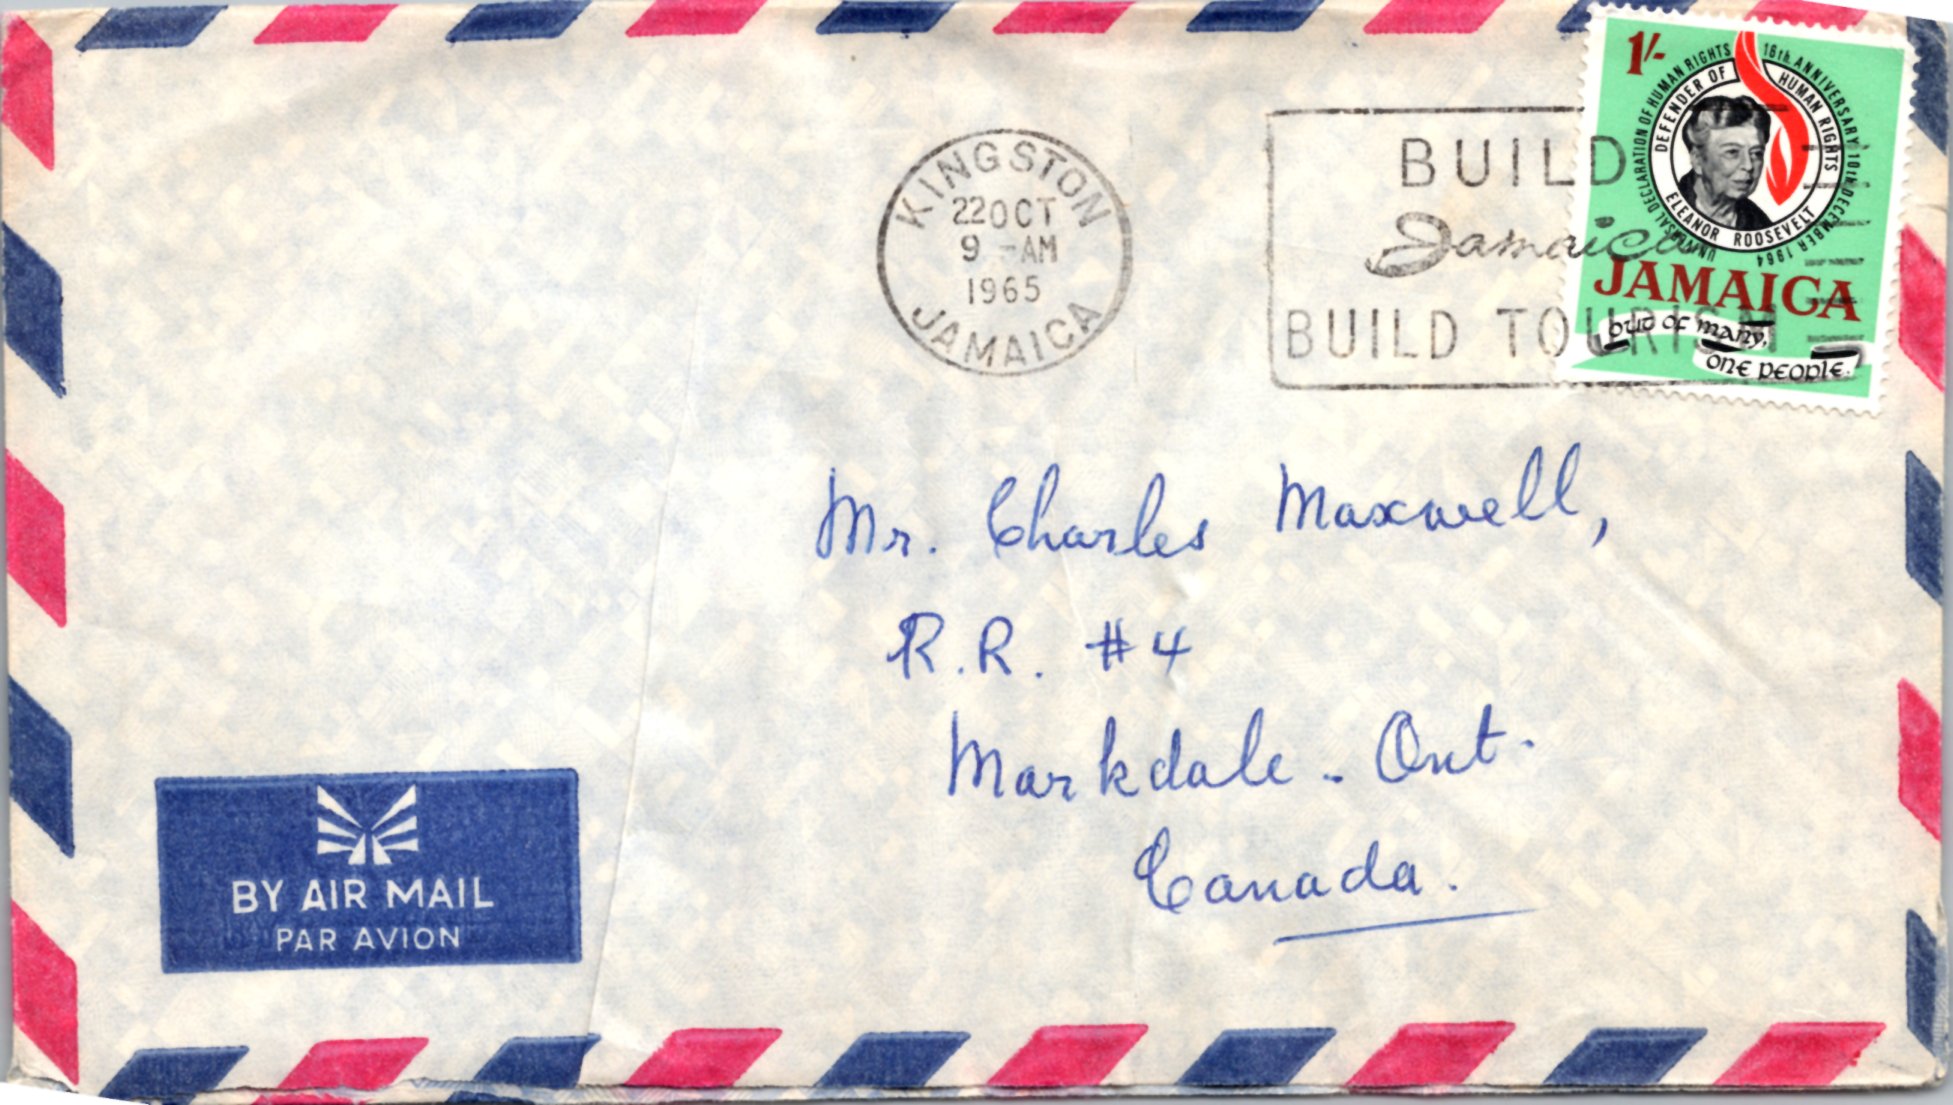 1/-
UNIVERSAL DECLARATION OF HUMAN RIGHTS 16th ANNIVERSARY 10th DECEMBER 1964
DEFENDER OF HUMAN RIGHTS
ELEANOR ROOSEVELT
JAMAICA
OUT OF MANY,
ONE PEOPLE.
KINGSTON
22 OCT
9 - AM
1965
JAMAICA
BUILD
Jamaica
BUILD TOURISM
Mr. Charles Maxwell,
R.R. #4
Markdale - Ont.
Canada.
BY AIR MAIL
PAR AVION